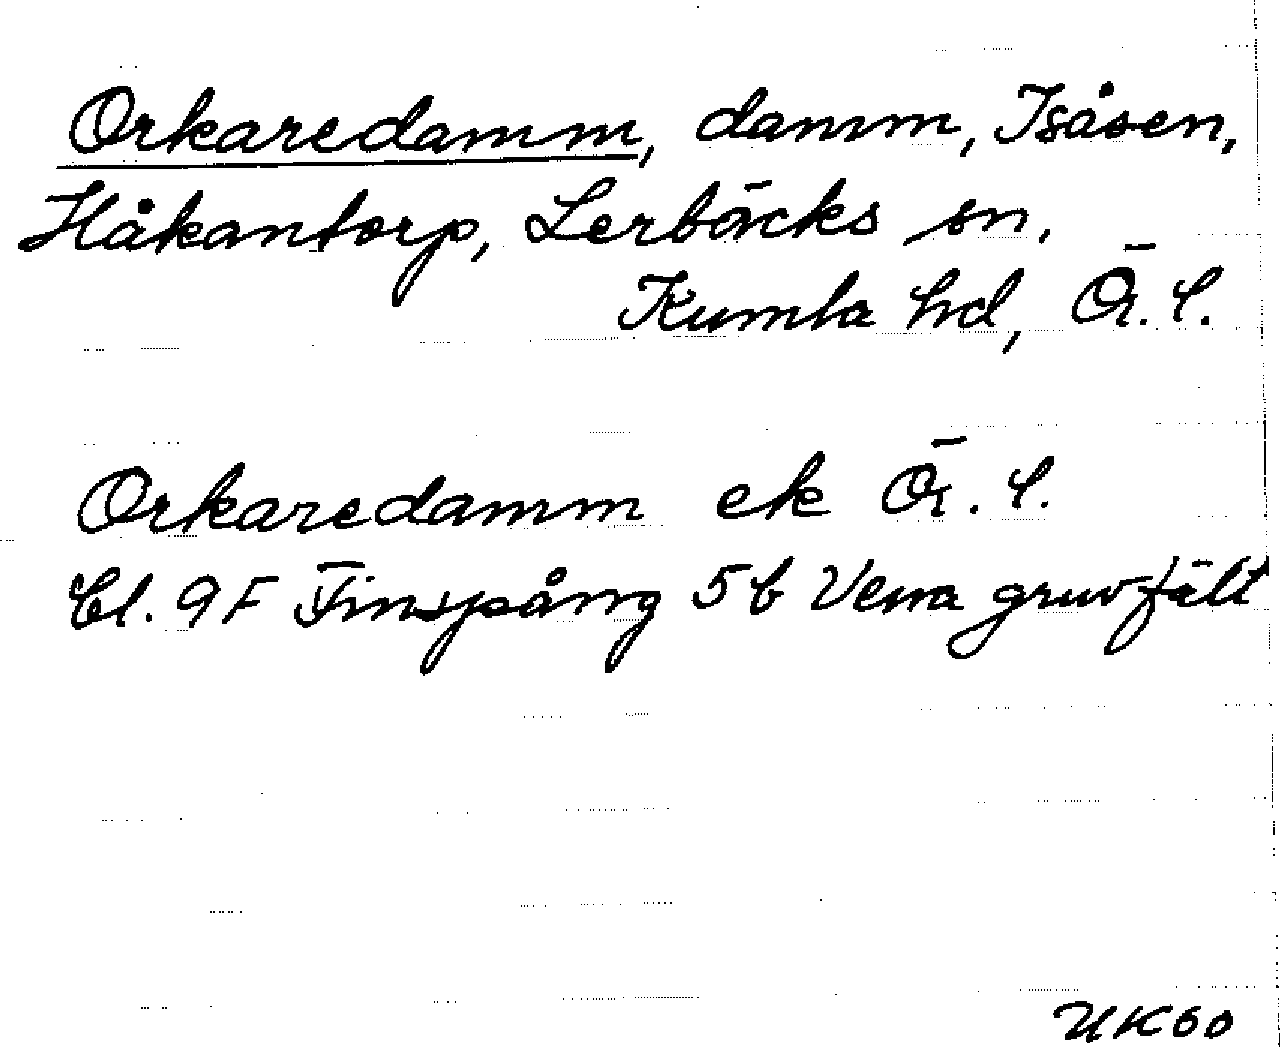 Orkaredamm, damm, Isåsen,
Håkantorp, Lerbäcks sn,
Kumla hd, Ö. l.
Orkaredamm ek Ö. l.
bl. 9F Finspång 5b Vena gruvfält
UK60